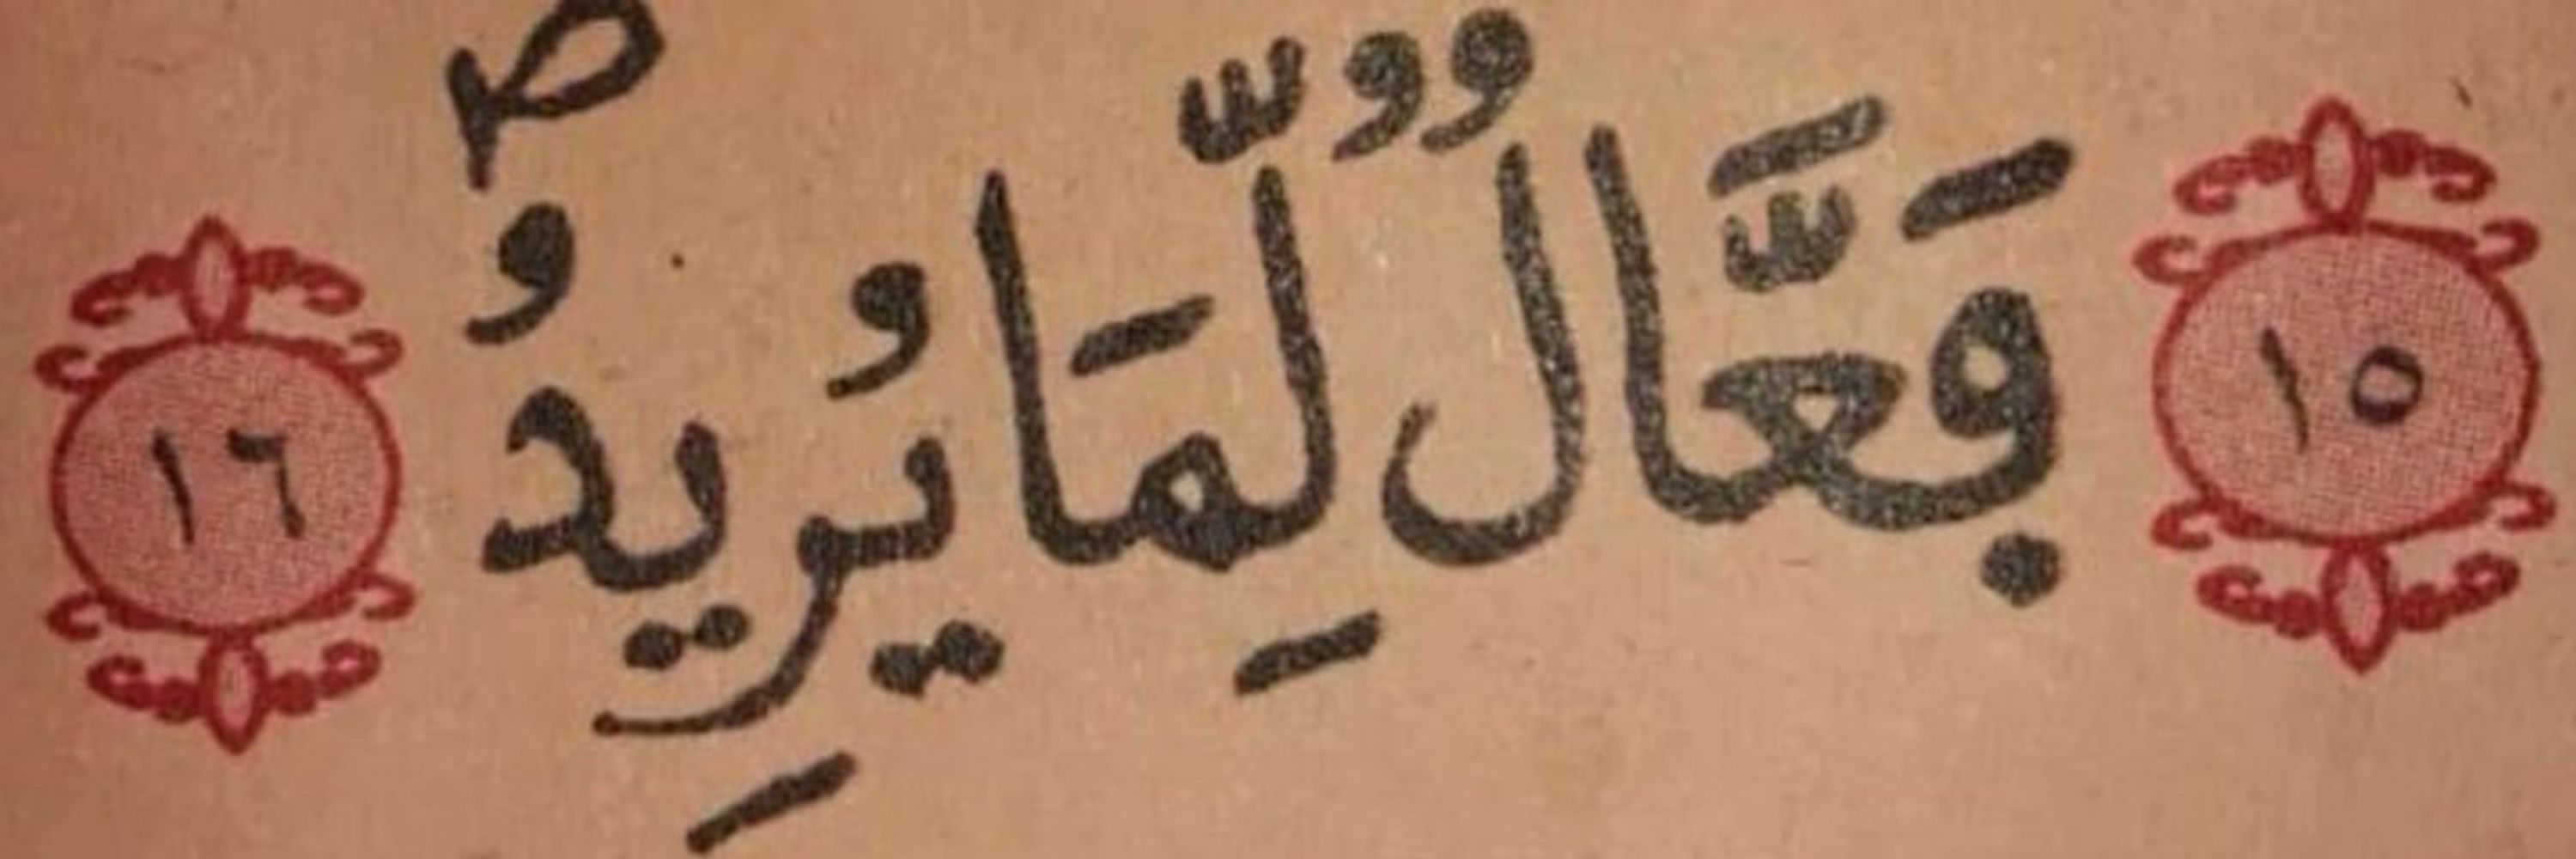 ١٥ فَعَّالٌ لِّمَا يُرِيدُ ۖ ١٦